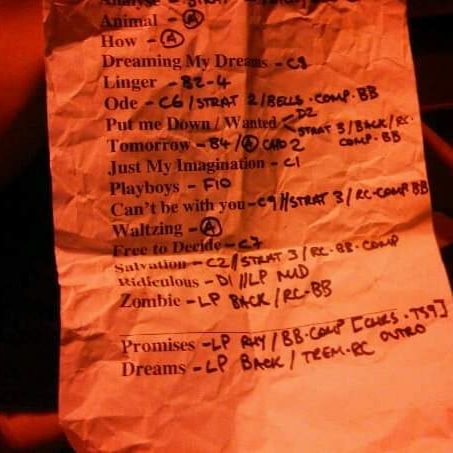 Analyse - STRAT
Animal - Ⓐ
How - Ⓐ
Dreaming My Dreams - C8
Linger - B2-4
Ode - C6/STRAT 2/BELLS·COMP·BB
Put me Down / Wanted - D2
STRAT 3/BACK/RC·
Tomorrow - B4/Ⓐ CHO 2 COMP·BB
Just My Imagination - C1
Playboys - F10
Can't be with you - C9//STRAT 3/RC·COMP BB
Waltzing - Ⓐ
Free to Decide - C7
Salvation - C2//STRAT 3/RC·BB·COMP
Ridiculous - D1//LP MID
Zombie - LP BACK/RC-BB
Promises - LP RHY/BB·COMP [CHRS·TS9]
Dreams - LP BACK/TREM·RC OUTRO